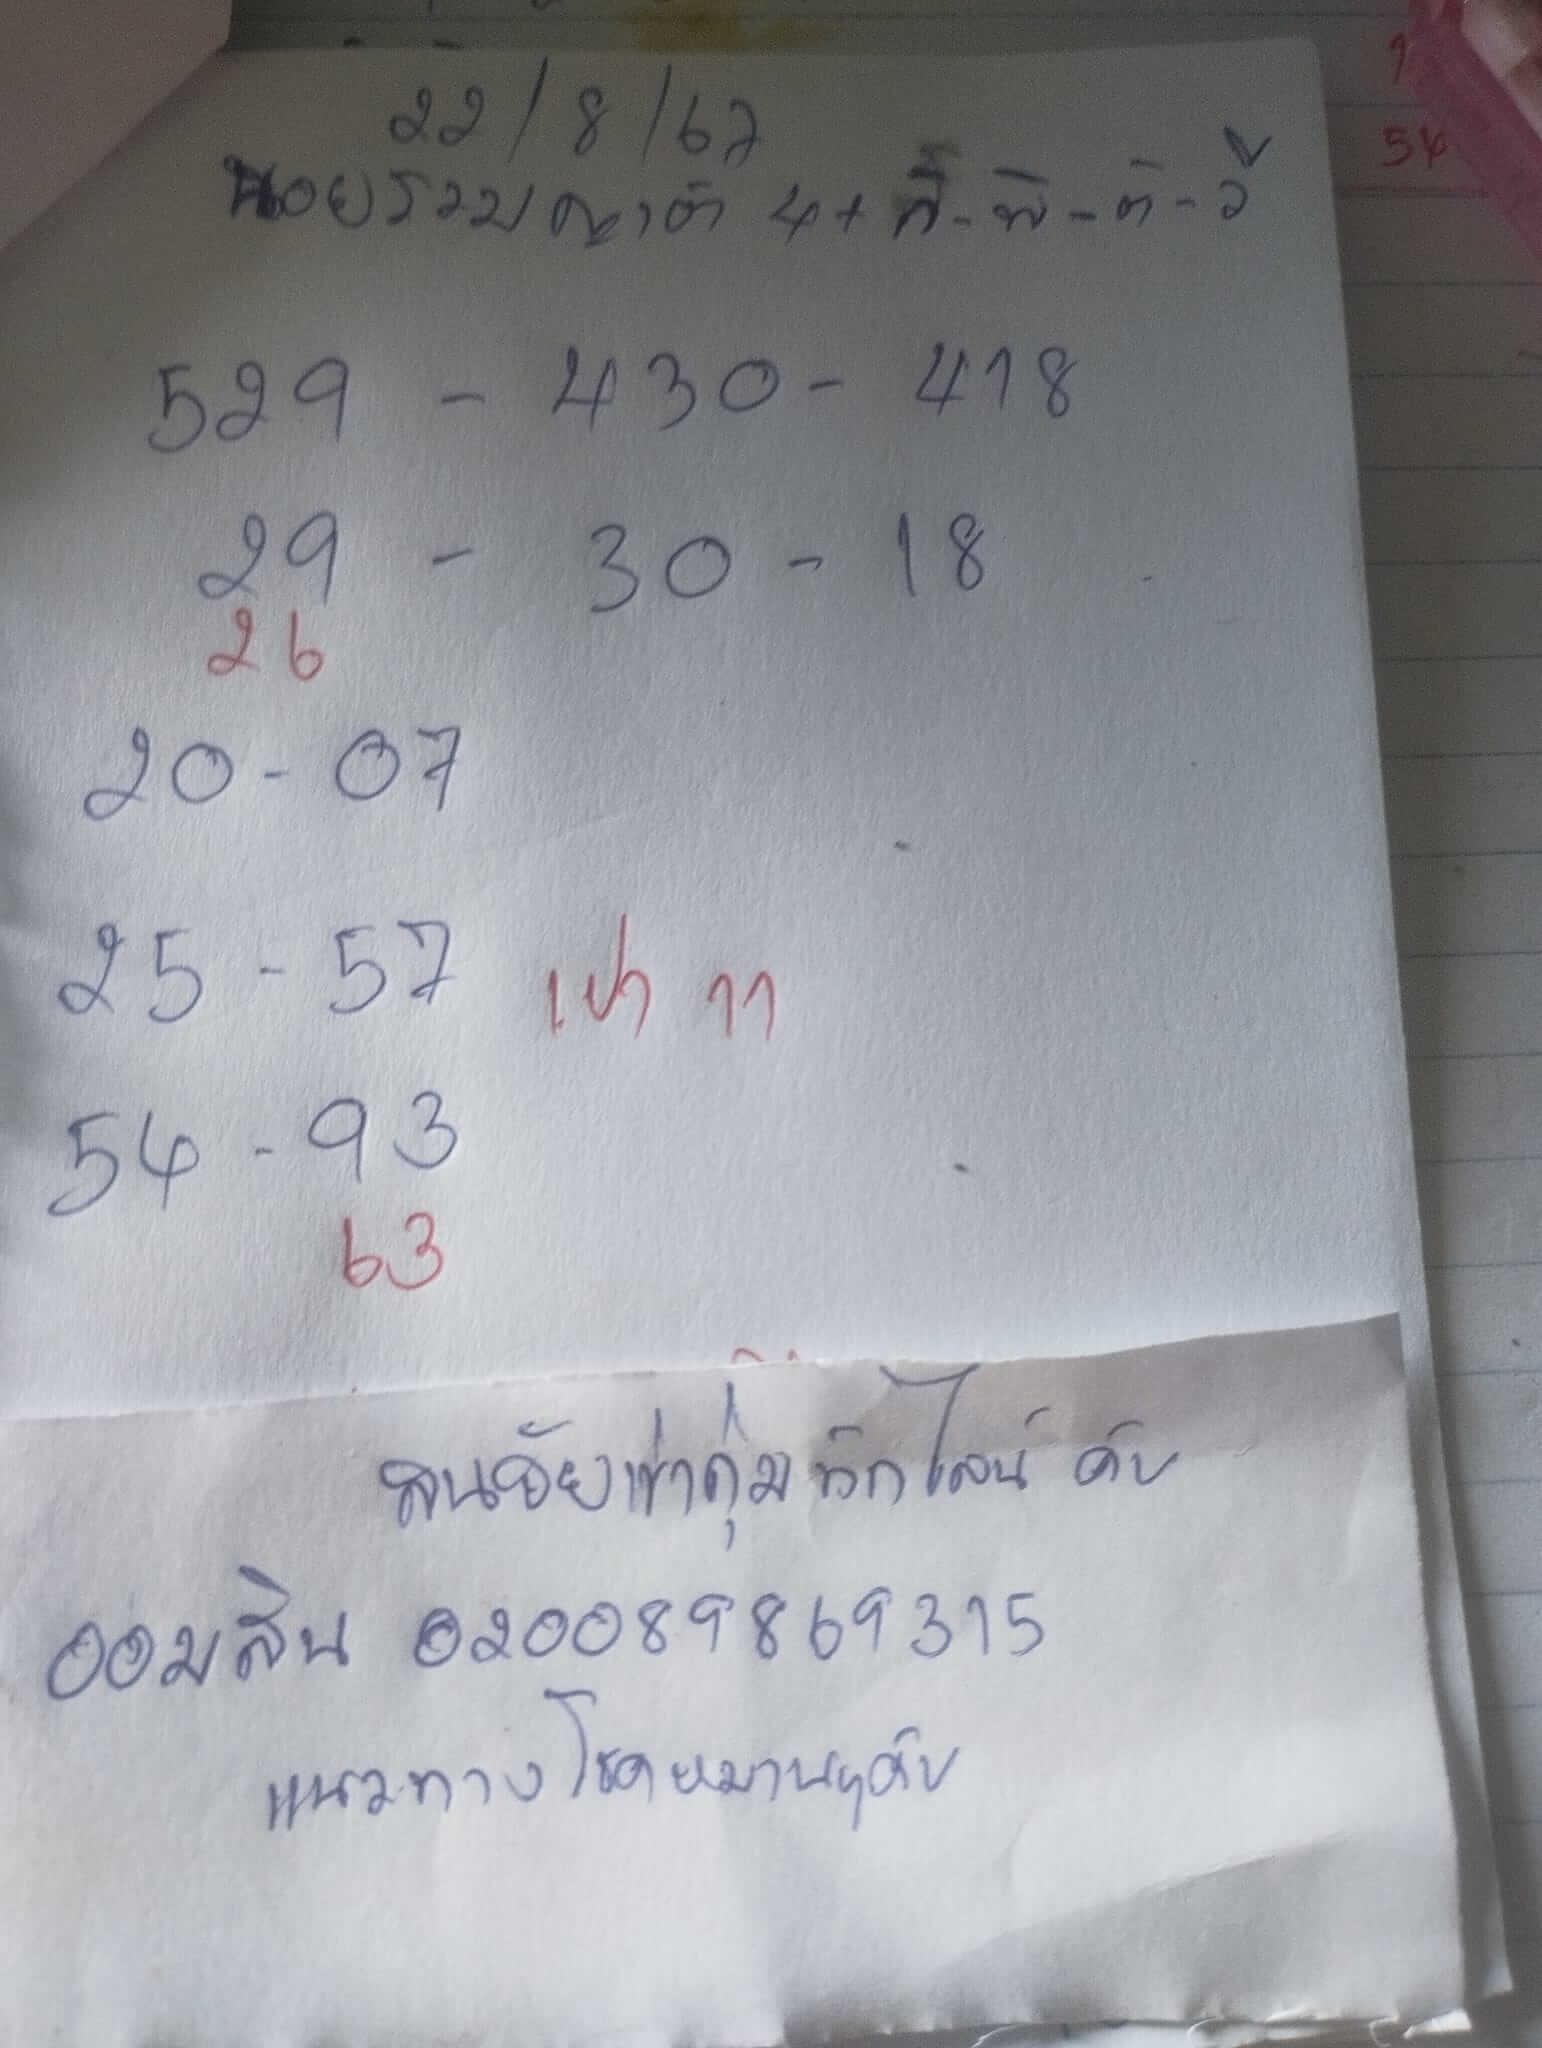 22/8/67
หอยรวมญาติ 4+ พี่-พิ-ติ-วี
529 - 430 - 418
29 - 30 - 18
26
20 - 07
25 - 57 เป่า 11
54 - 93
63
สนใจเข้ากลุ่ม ทักไลน์ คับ
ออมสิน 020089869315
แนวทางโชคหมานๆคับ
54